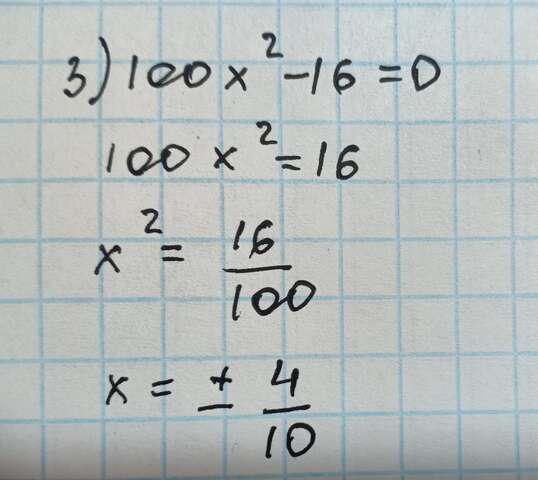 3) 100x² - 16 = 0
100x² = 16
x² = 16/100
x = ± 4/10